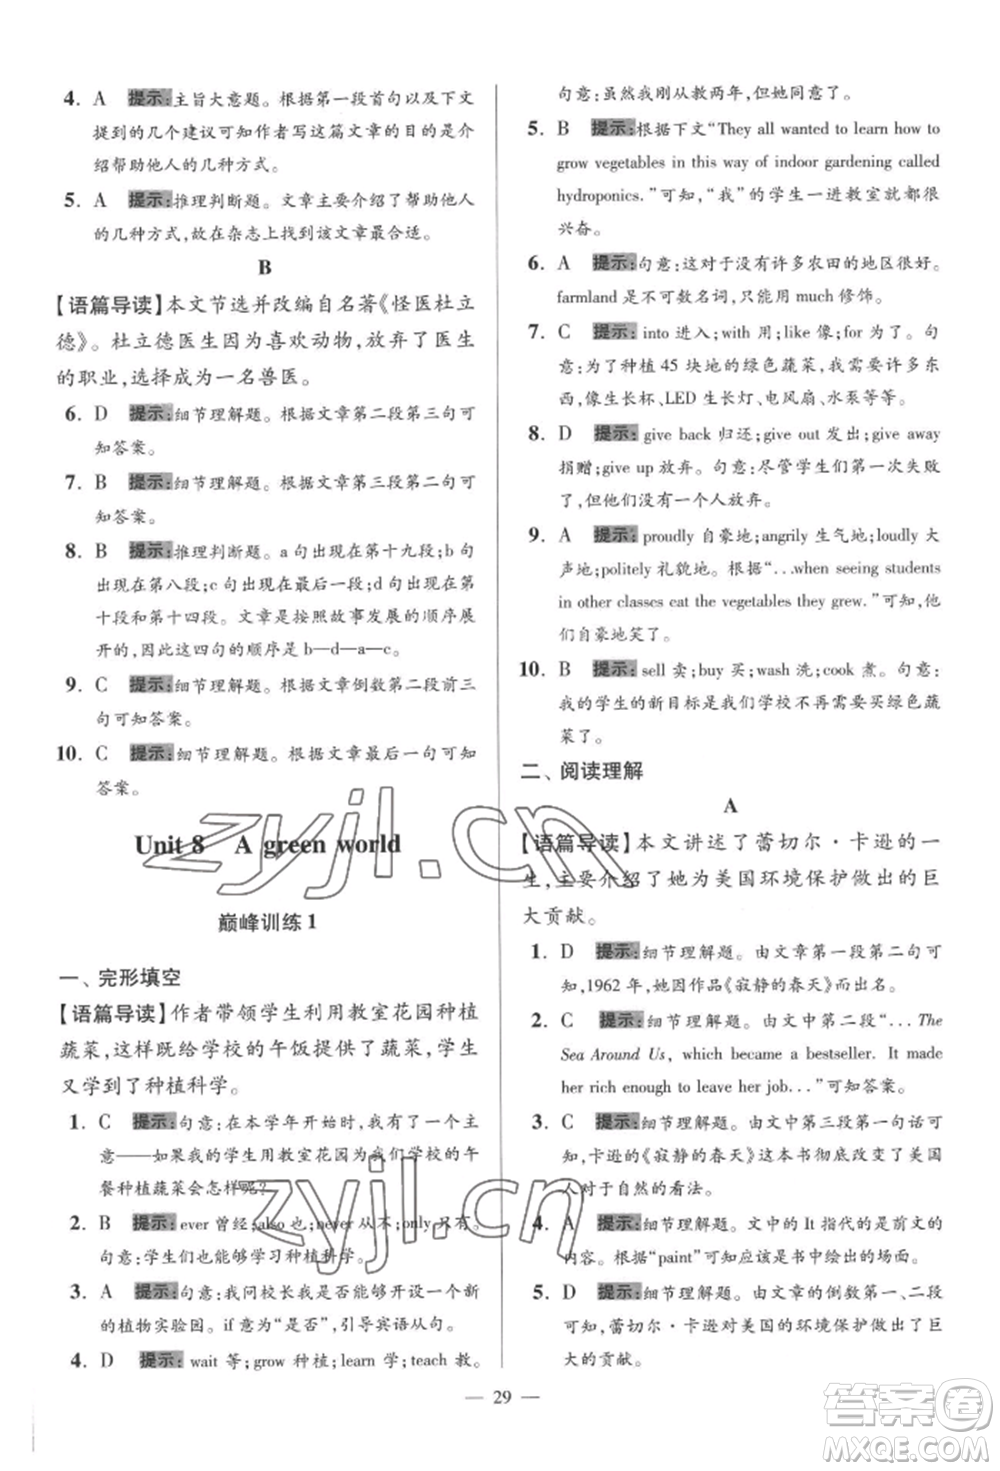 4. A 提示:主旨大意题。根据第一段首句以及下文
提到的几个建议可知作者写这篇文章的目的是介
绍帮助他人的几种方式。
5. A 提示:推理判断题。文章主要介绍了帮助他人
的几种方式,故在杂志上找到该文章最合适。
B
【语篇导读】本文节选并改编自名著《怪医杜立
德》。杜立德医生因为喜欢动物,放弃了医生
的职业,选择成为一名兽医。
6. D 提示:细节理解题。根据文章第二段第三句可
知答案。
7. B 提示:细节理解题。根据文章第三段第二句可
知答案。
8. B 提示:推理判断题。a句出现在第十九段;b句
出现在第八段;c句出现在最后一段;d句出现在第
十段和第十四段。文章是按照故事发展的顺序展
开的,这四句的顺序是b—d—a—c。
9. C 提示:细节理解题。根据文章倒数第二段前三
句可知答案。
10. C 提示:细节理解题。根据文章最后一句可知
答案。
Unit 8 A green world
巅峰训练1
一、完形填空
【语篇导读】作者带领学生利用教室花园种植
蔬菜,这样既给学校的午饭提供了蔬菜,学生
又学到了种植科学。
1. C 提示:句意:在本学年开始时,我有一个主
意——如果我的学生用教室花园为我们学校的午
餐种植蔬菜会怎样呢?
2. B 提示:ever 曾经;also 也;never 从不;only 只有。
句意:学生们也能够学习种植科学。
3. A 提示:句意:我问校长我是否能建一个新
的植物实验园。if 意为“是否”,引导宾语从句。
4. D 提示:wait 等;grow 种植;learn 学;teach 教。
句意:虽然我从教两年,但她同意了。
5. B 提示:根据下文“They all wanted to learn how to
grow vegetables in this way of indoor gardening called
hydroponics.”可知,“我”的学生一进教室就都很
兴奋。
6. A 提示:句意:这对于没有许多农田的地区很好。
farmland 是不可数名词,只能用 much 修饰。
7. C 提示:into 进入;with 用;like 像;for 为了。句
意:为了种植 45 块地的绿色蔬菜,我需要许多东
西,像生长杯、LED 生长灯、电风扇、水泵等等。
8. D 提示:give back 归还;give out 发出;give away
捐赠;give up 放弃。句意:尽管学生们第一次失败
了,但他们没有一个人放弃。
9. A 提示:proudly 自豪地;angrily 生气地;loudly 大
声地;politely 礼貌地。根据“...when seeing students
in other classes eat the vegetables they grew.”可知,他
们自豪地笑了。
10. B 提示:sell 卖;buy 买;wash 洗;cook 煮。句意:
我的学生的新目标是我们学校不再买绿色蔬
菜了。
二、阅读理解
A
【语篇导读】本文讲述了蕾切尔·卡逊的一
生,主要介绍了她为美国环境保护做出的巨
大贡献。
1. D 提示:细节理解题。由文章第一段第二句可
知,1962 年,她因作品《寂静的春天》出名。
2. C 提示:细节理解题。由文中第二段“...The
Sea Around Us, which became a bestseller. It made
her rich enough to leave her job...”可知答案。
3. C 提示:细节理解题。由文中第三段第一句话可
知,卡逊的《寂静的春天》这本书彻底改变了美国
人对于自然的看法。
4. A 提示:细节理解题。文中的 It 指代的是前文的
内容。根据“paint”可知应该是书中绘出的场面。
5. D 提示:细节理解题。由文章的倒数第一、二段
可知,蕾切尔·卡逊对美国的环境保护做出了巨
大的贡献。
— 29 —
zyjl.cn
zyjl.cn
答案圈
MXQE.COM